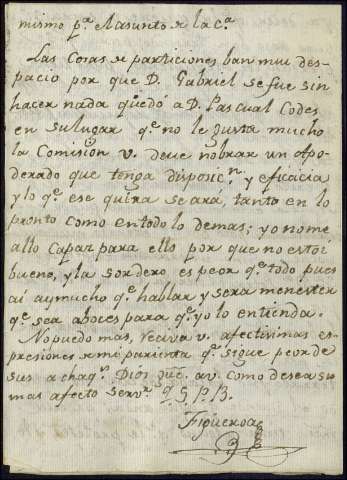 mismo pª. el asunto de la cª.
Las Cosas de particiones ban mui des-
pacio por que D. Gabriel se fue sin
hacer nada quedó a D. Pascual Codes
en su lugar qe. no le gusta mucho
la Comisiōn v. deve nobrar un Apo-
derado que tenga disposicn. y eficacia
y lo qe. ese quira se ará, tanto en lo
pronto como en todo lo demas; yo no me
allo Capaz para ello por que no estoi
bueno, y la sordera es peor qe. todo pues
ai aymucho qe. hablar y sera menester
qe. sea aboces para qe. yo lo entienda.
No puedo mas, reciva v. afectivimas es-
presiones de mi parienta qe. sigue peor de
sus achaqs. Dios gue. a v. como desea su
mas afecto servr. q. S. P. B.
Figueroa